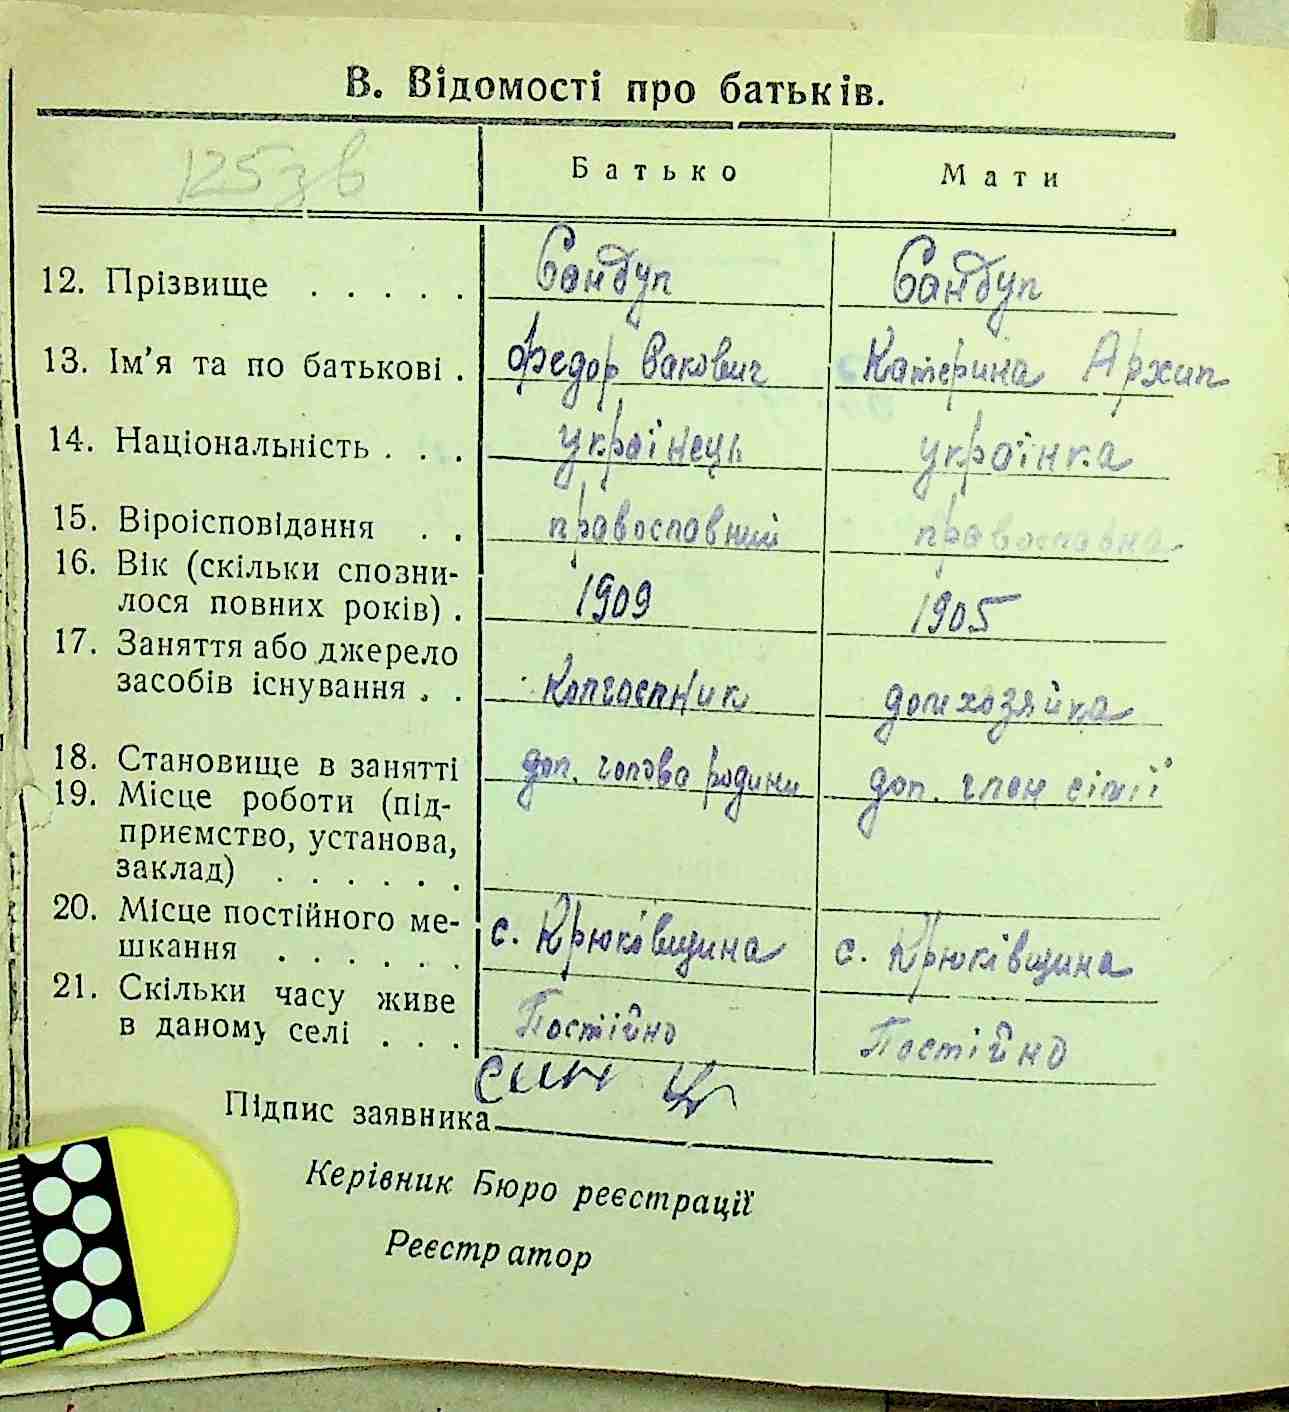 В. Відомості про батьків.
125зв
Батько Мати
12. Прізвище . . . . . Сандул Сандул
13. Ім'я та по батькові . Федор Вакович Катерина Архип
14. Національність . . . українець українка
15. Віроісповідання . . православний православна
16. Вік (скільки спозни-
лося повних років) . 1909 1905
17. Заняття або джерело
засобів існування . . Колгоспник домхозяйка
18. Становище в занятті доп. голова родини доп. член сімії
19. Місце роботи (під-
приємство, установа,
заклад) . . . . . .
20. Місце постійного ме-
шкання . . . . . . с. Крюківщина с. Крюківщина
21. Скільки часу живе
в даному селі . . . Постійно Постійно
Підпис заявника син
Керівник Бюро реєстрації
Реєстратор